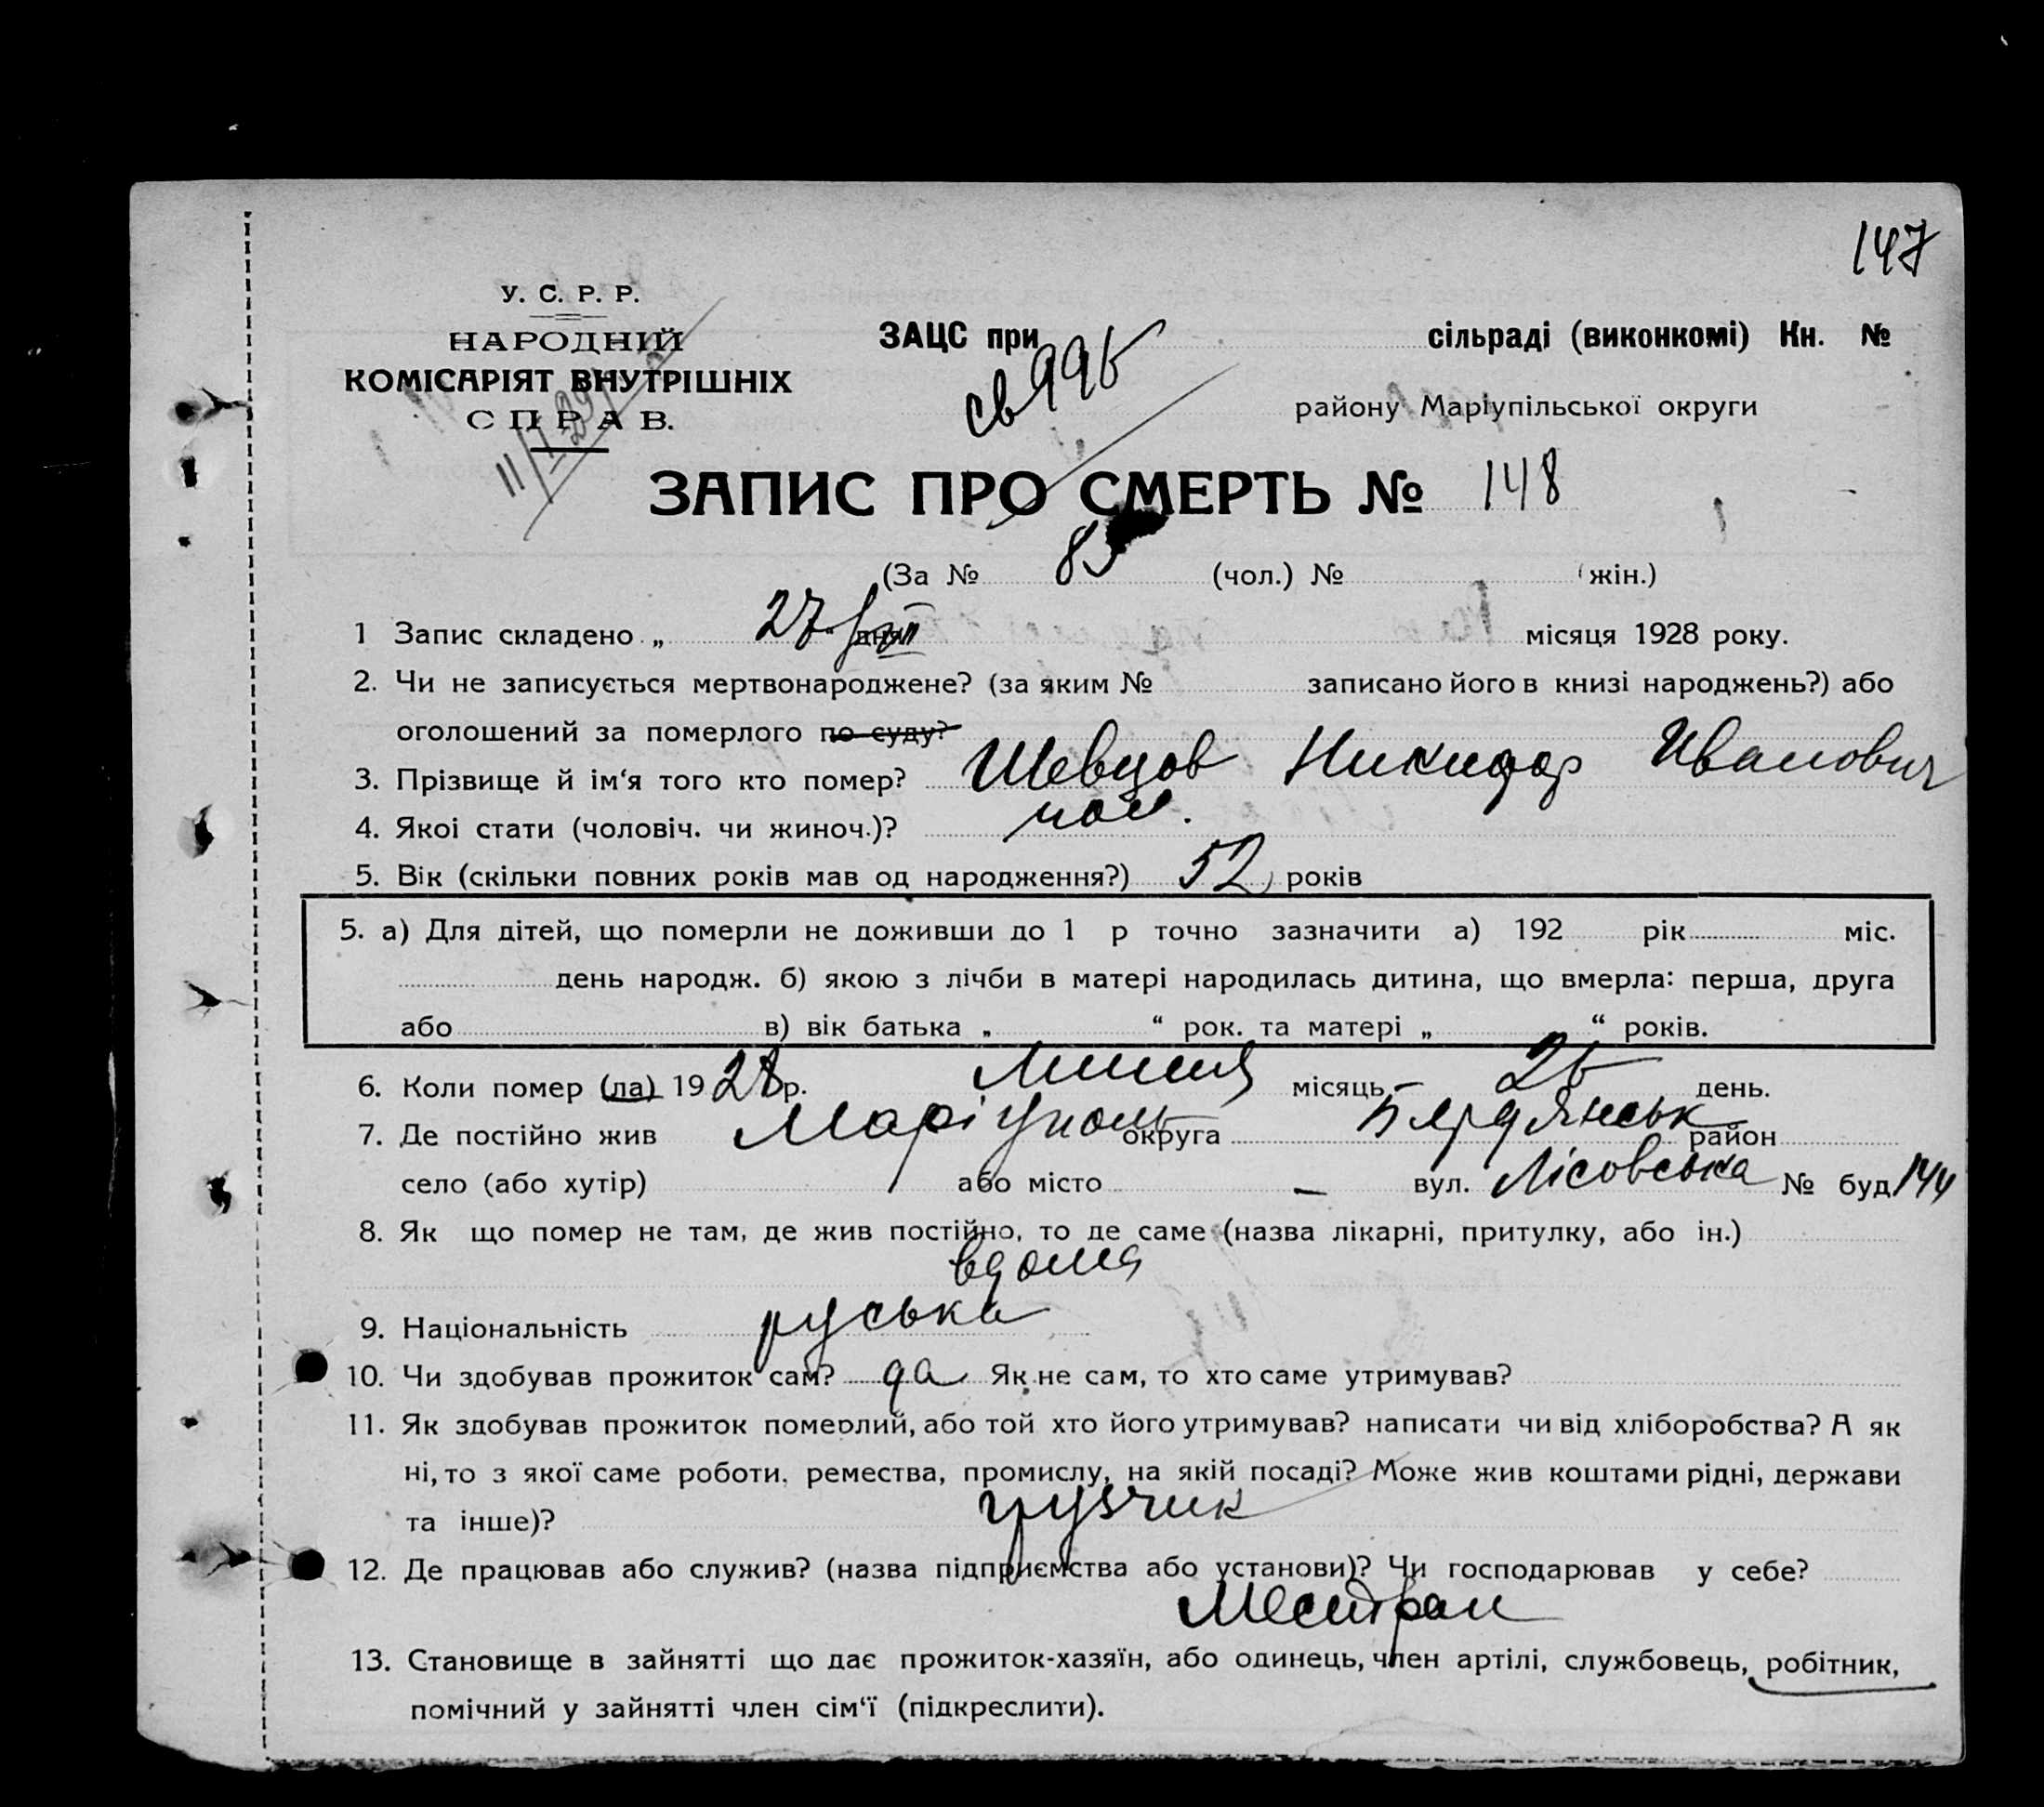 147
У. С. Р. Р.
НАРОДНІЙ
КОМІСАРІЯТ ВНУТРІШНІХ
СПРАВ.
ЗАЦС при сільраді (виконкомі) Кн. №
району Маріупільської округи
ЗАПИС ПРО СМЕРТЬ № 148
(За № 85 (чол.) № (жін.)
1 Запис складено „ 27 “ дня місяця 1928 року.
2. Чи не записується мертвонароджене? (за яким № записано його в книзі народжень?) або
оголошений за померлого по суду?
3. Прізвище й ім‘я того кто помер? Шевцов Никифор Иванович
4. Якоі стати (чоловіч. чи жиноч.)? чол.
5. Вік (скільки повних років мав од народження?) 52 років
5. а) Для дітей, що померли не доживши до 1 р точно зазначити а) 192 рік міс.
день народж. б) якою з лічби в матері народилась дитина, що вмерла: перша, друга
або в) вік батька „ “ рок. та матері „ “ років.
6. Коли помер (ла) 1928 р. Липня місяць – 26 день.
7. Де постійно жив Маріуполь округа Бердянськ район
село (або хутір) або місто – вул. Лісовська № буд 144
8. Як що помер не там, де жив постійно, то де саме (назва лікарні, притулку, або ін.)
вдома
9. Національність руська
10. Чи здобував прожиток сам? да Як не сам, то хто саме утримував?
11. Як здобував прожиток померлий, або той хто його утримував? написати чи від хліборобства? А як
ні, то з якої саме роботи, ремества, промислу, на якій посаді? Може жив коштами рідні, держави
та інше)? грузчик
12. Де працював або служив? (назва підприємства або установи)? Чи господарював у себе?
Местран
13. Становище в зайнятті що дає прожиток-хазяїн, або одинець, член артілі, службовець, робітник,
помічний у зайнятті член сім‘ї (підкреслити).